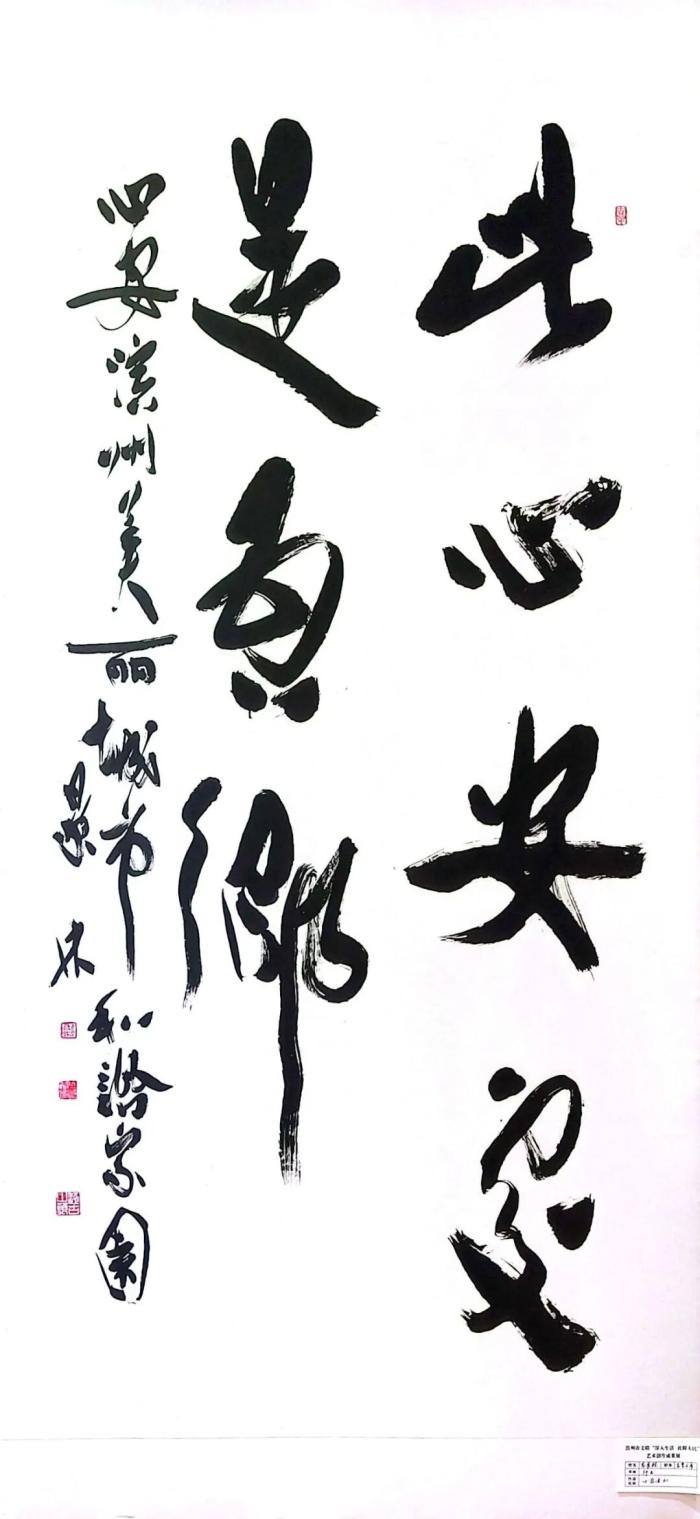 此心安處
是吾鄉
心安濱州美丽城市和諧家園
景林
滨州市文联“深入生活 扎根人民”
艺术创作成果展